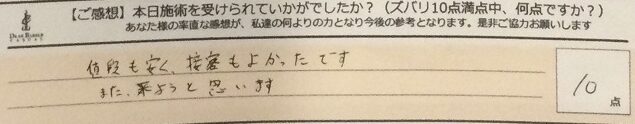 【ご感想】本日施術を受けられていかがでしたか？（ズバリ10点満点中、何点ですか？）
あなた様の率直な感想が、私達の何よりの力となり今後の参考となります。是非ご協力お願いします
DEAR BARBER
値段も安く、接客もよかったです
また、来ようと思います
10点